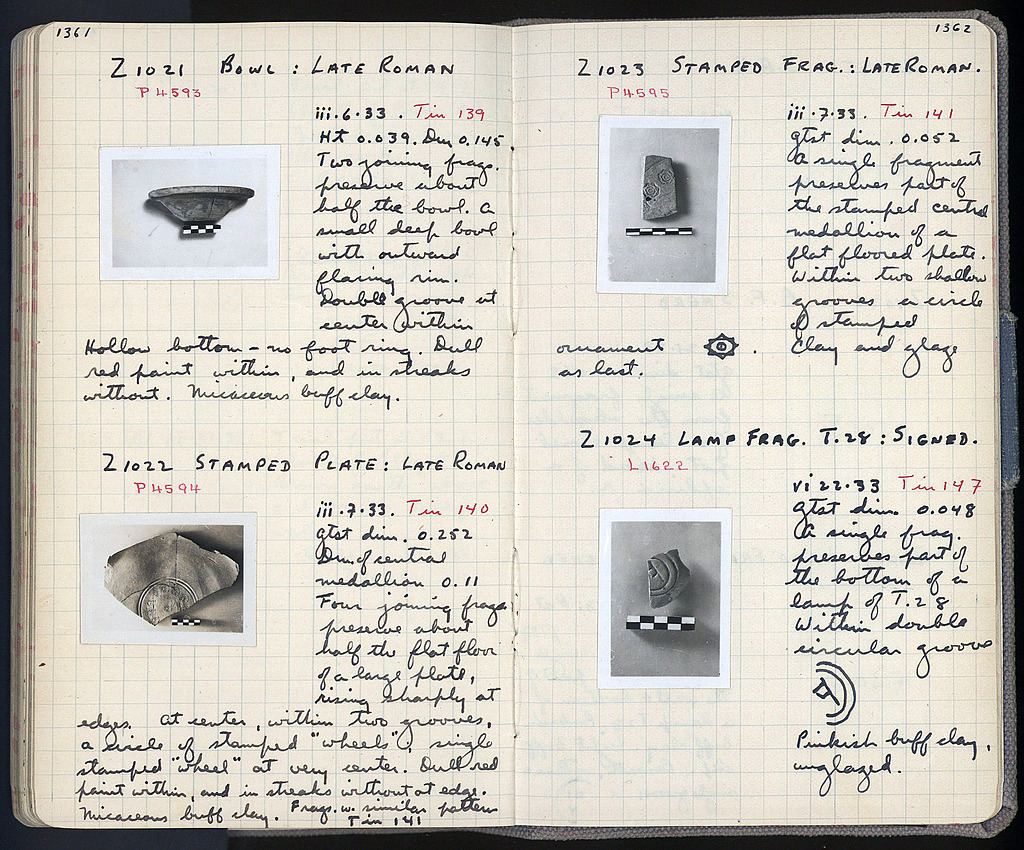 1361
Z 1021 BOWL : LATE ROMAN
P 4593
iii.6.33. Tin 139
Ht 0.039. Dm 0.145.
Two joining frags.
preserve about
half the bowl. A
small deep bowl
with outward
flaring rim.
Double groove at
center within
Hollow bottom – no foot ring. Dull
red paint within, and in streaks
without. Micaceous buff clay.
Z 1022 STAMPED PLATE : LATE ROMAN
P 4594
iii.7.33. Tin 140
gtst dim. 0.252
Dm of central
medallion 0.11
Four joining frags
preserve about
half the flat floor
of a large plate,
rising sharply at
edges. At center, within two grooves,
a circle of stamped "wheels", single
stamped "wheel" at very center. Dull red
paint within, and in streaks without at edge.
Micaceous buff clay. Frags. w. similar pattern
Tin 141
1362
Z 1023 STAMPED FRAG. : LATE ROMAN.
P 4595
iii.7.33. Tin 141
gtst dim. 0.052
A single fragment
preserves part of
the stamped central
medallion of a
flat floored plate.
Within two shallow
grooves a circle
of stamped
ornament .
Clay and glaze
as last.
Z 1024 LAMP FRAG. T.28 : SIGNED.
L 1622
vi 22.33 Tin 147
gtst dim. 0.048
A single frag.
preserves part of
the bottom of a
lamp of T.28
Within double
circular groove
Pinkish buff clay,
unglazed.